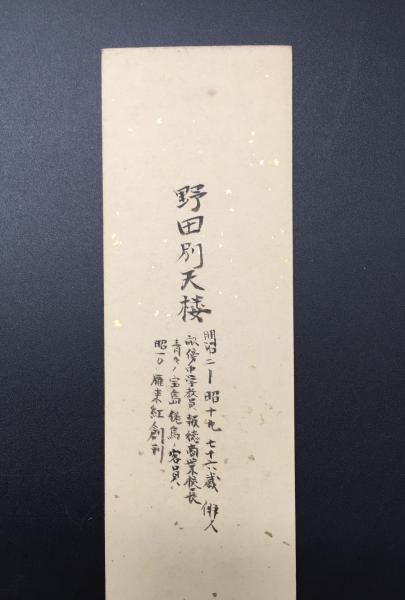 野田別天楼
明治二ー昭十九 七十六歳 俳人
中学教員 報徳商業校長
宝島 鵙鳥 客員
昭一〇 雁来紅創刊